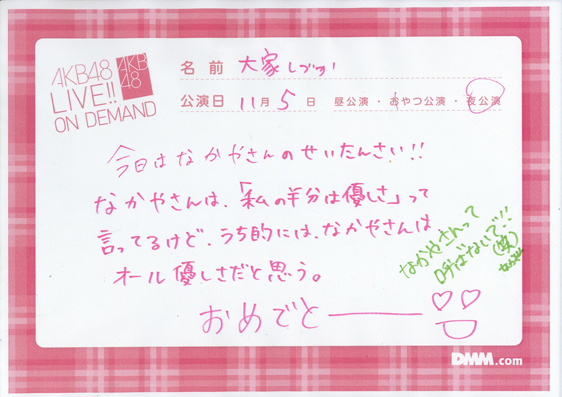 AKB48
LIVE!!
ON DEMAND
AKB
48
名前 大家しづか
公演日 11月5日 昼公演・おやつ公演・夜公演
今日はなかやさんのせいたんさい!!
なかやさんは、「私の半分は優しさ」って
言ってるけど、うち的には、なかやさんは
オール優しさだと思う。
おめでとーーー
なかやさんって
呼ばないで!!
(笑)
DMM.com